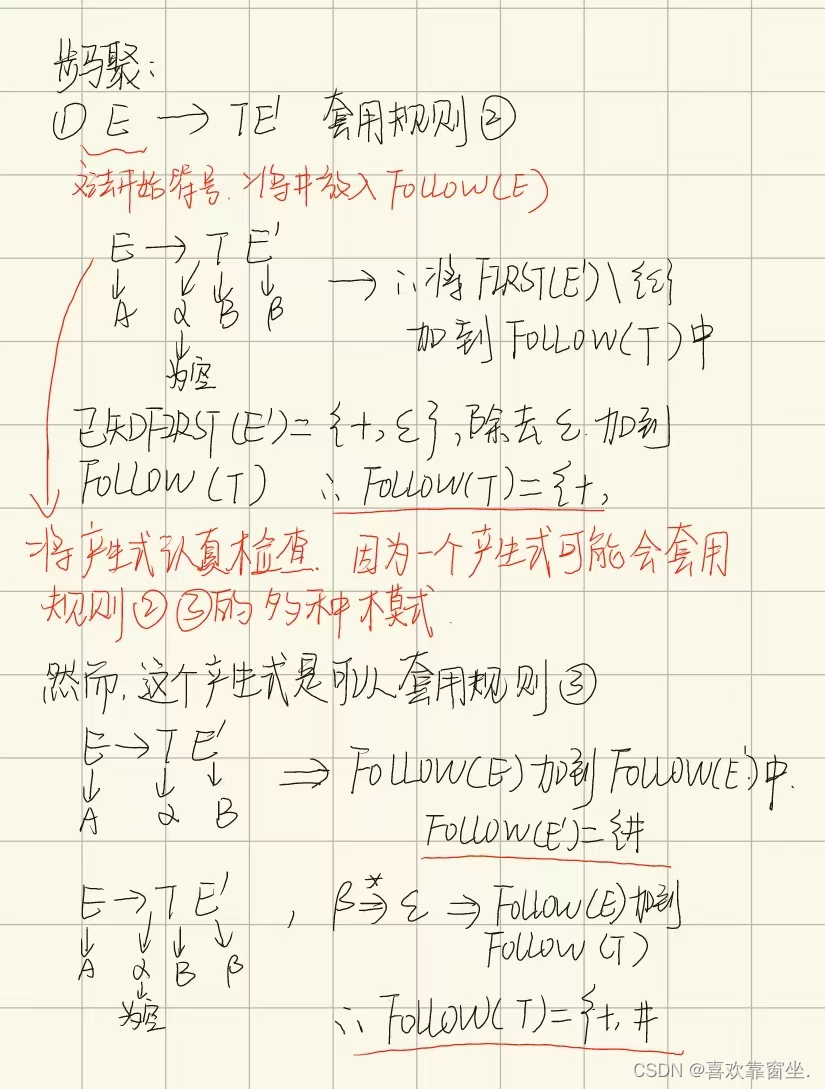 步骤：
① E → TE' 套用规则②
文法开始符号. 将#放入FOLLOW(E)
E → T E'
↓ ↓ ↓ ↓
A α B β
↓
为空
→ ∴将FIRST(E')\{ε}
加到FOLLOW(T)中
已知FIRST(E')={+,ε},除去ε.加到
FOLLOW(T) ∴ FOLLOW(T)={+,
将产生式认真检查. 因为一个产生式可能会套用
规则②③的多种模式.
然而,这个产生式是可以套用规则③
E → T E'
↓ ↓ ↓
A α B
⇒ FOLLOW(E)加到FOLLOW(E')中.
FOLLOW(E')={#
E → T E' , β ⇒* ε ⇒ FOLLOW(E)加到
↓ ↓ ↓ ↓ FOLLOW(T)
A α B β
↓
为空
∴ FOLLOW(T)={+,#
CSDN @喜欢靠窗坐.